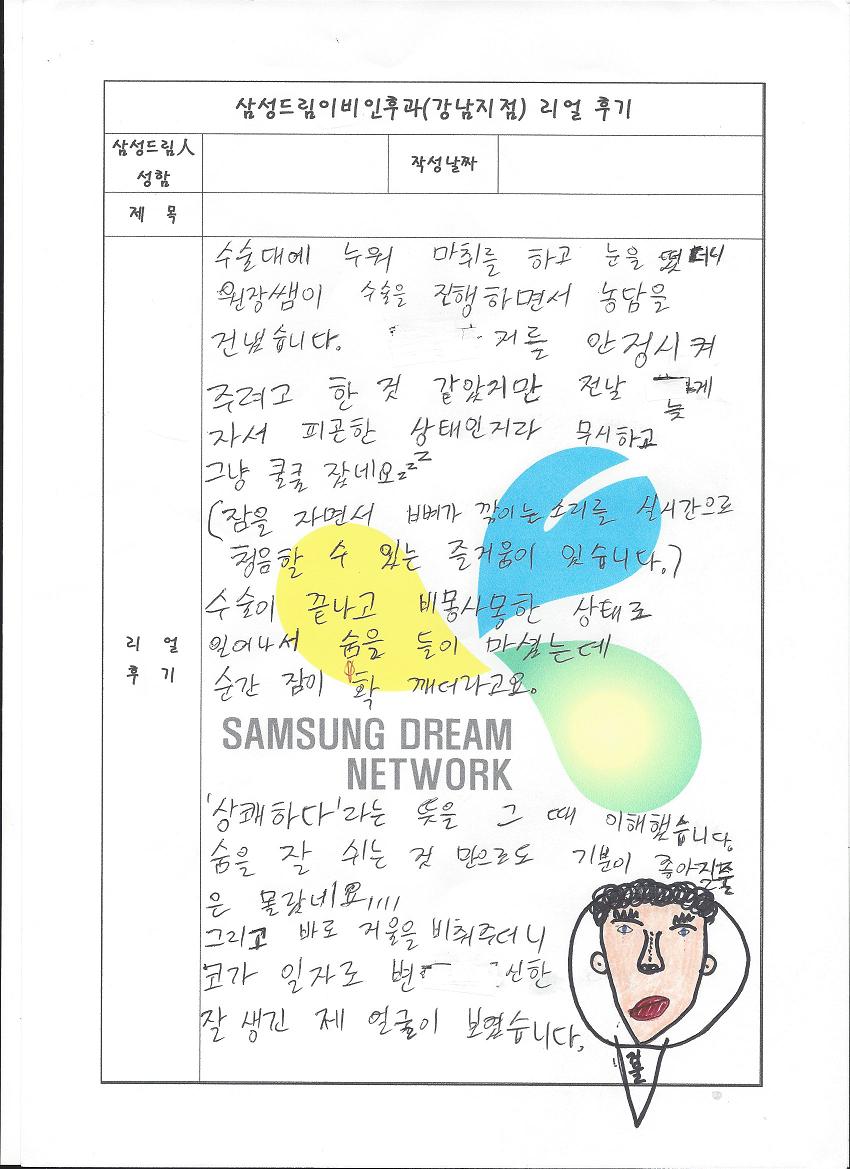 삼성드림이비인후과(강남지점) 리얼 후기
삼성드림人
성함
작성날짜
제 목
리 얼
후 기
수술대에 누워 마취를 하고 눈을 떴더니
원장쌤이 수술을 진행하면서 농담을
건냈습니다. 저를 안정시켜
주려고 한 것 같았지만 전날 늦게
자서 피곤한 상태인지라 무시하고
그냥 쿨쿨 잤네요zzz
(잠을 자면서 뼈가 깎이는 소리를 실시간으로
청음할 수 있는 즐거움이 있습니다.)
수술이 끝나고 비몽사몽한 상태로
일어나서 숨을 들이 마셨는데
순간 잠이 확 깨더라고요.
SAMSUNG DREAM
NETWORK
'상쾌하다'라는 뜻을 그 때 이해했습니다.
숨을 잘 쉬는 것 만으로도 기분이 좋아진줄
은 몰랐네요,,,,
그리고 바로 거울을 비춰주더니
코가 일자로 변신한
잘 생긴 제 얼굴이 보였습니다.
거울